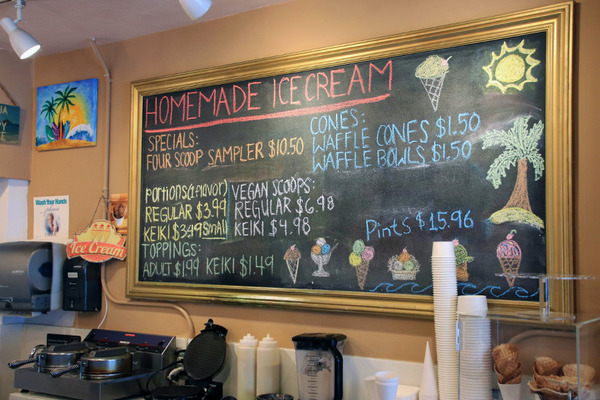 HOMEMADE ICE CREAM
SPECIALS:
FOUR SCOOP SAMPLER $10.50
CONES:
WAFFLE CONES $1.50
WAFFLE BOWLS $1.50
PORTIONS (1 FLAVOR)
REGULAR $3.99
KEIKI $3.49 Small
VEGAN SCOOPS:
REGULAR $6.98
KEIKI $4.98
Pints $15.96
TOPPINGS:
ADULT $1.99 KEIKI $1.49
Wash Your Hands
Ice Cream